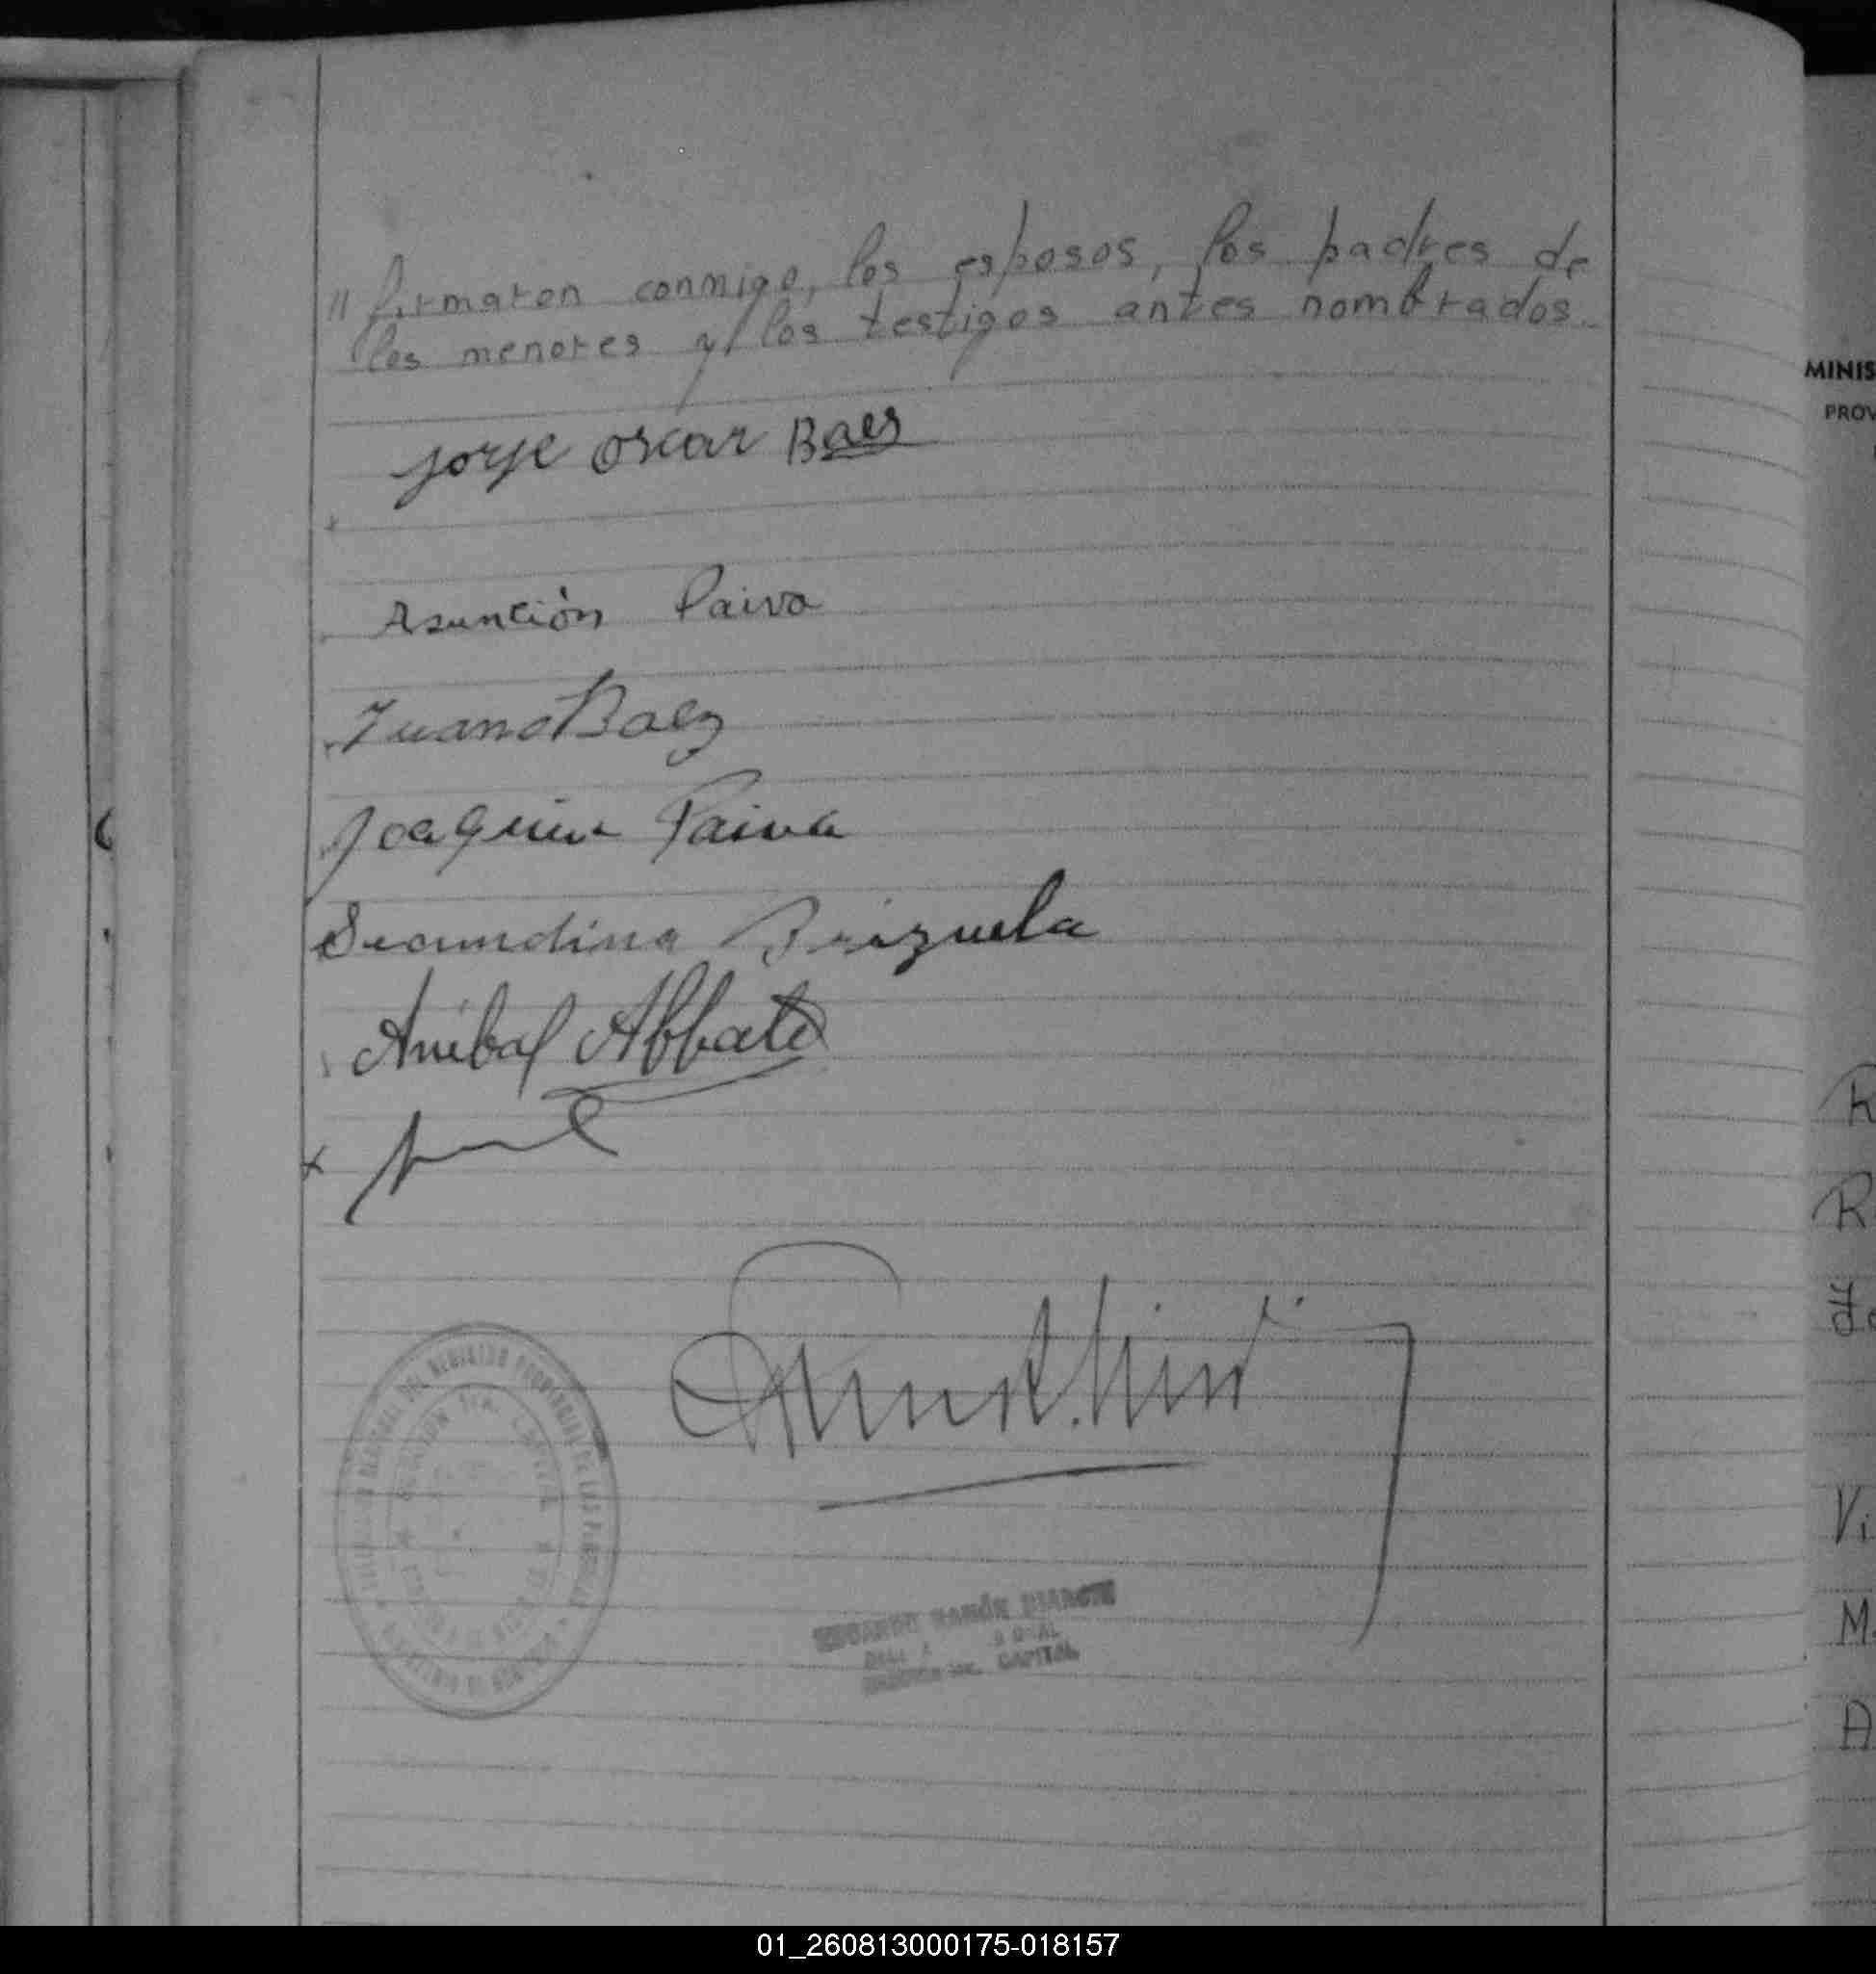 // firmaron conmigo, los esposos, los padres de
los menores y los testigos antes nombrados.
Jorge Oscar Baes
Asunción Paiva
Juana Baez
Joaquin Paiva
Secundina Brizuela
Anibal Abbate
x
RAMÓN
CAPITAL
MINIS
PROV
R
R
Vi
M.
A
01_260813000175-018157